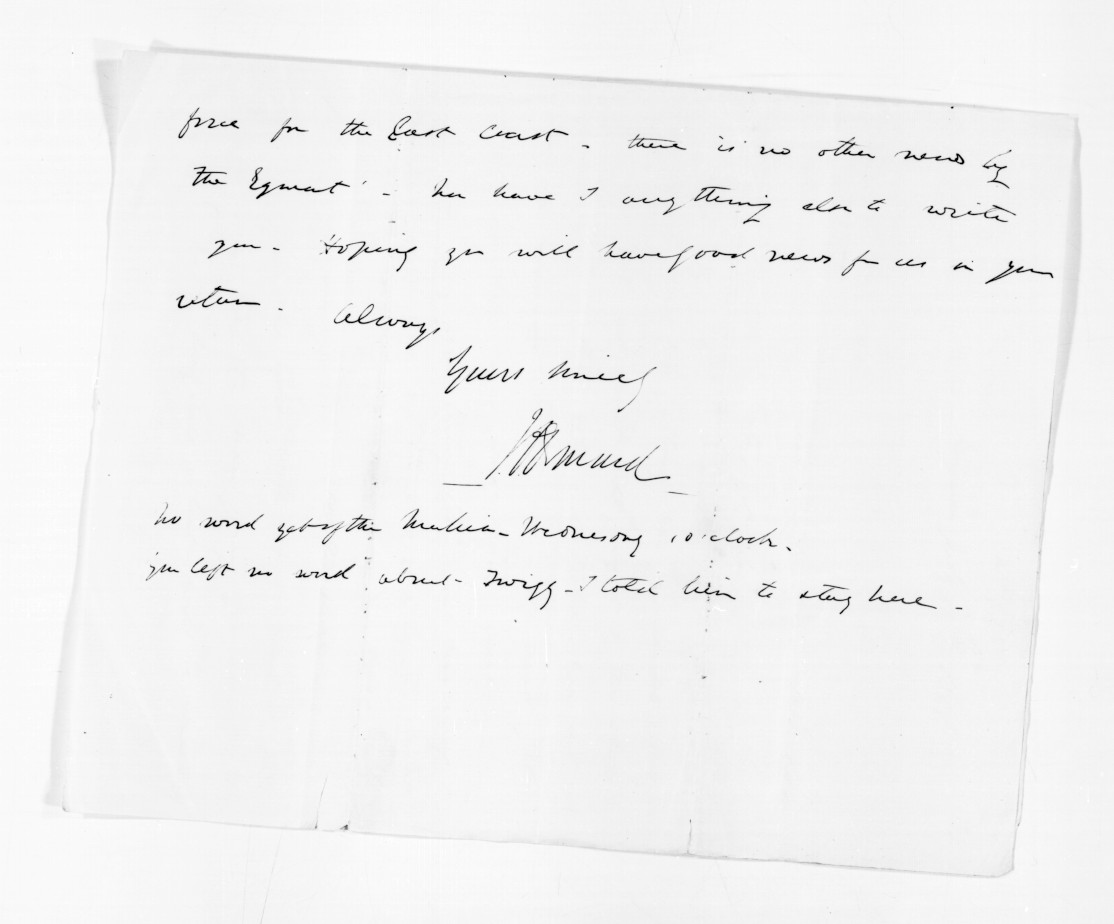 force for the East Coast - there is no other news by
the Egmont' - nor have I anything else to write
you - Hoping you will have good news for us in your
return. Always
Yours sincely
J D Ormond
no word yet of the - Wednesday 10 o'clock -
you left no word about - Twigg - I told him to stay here -